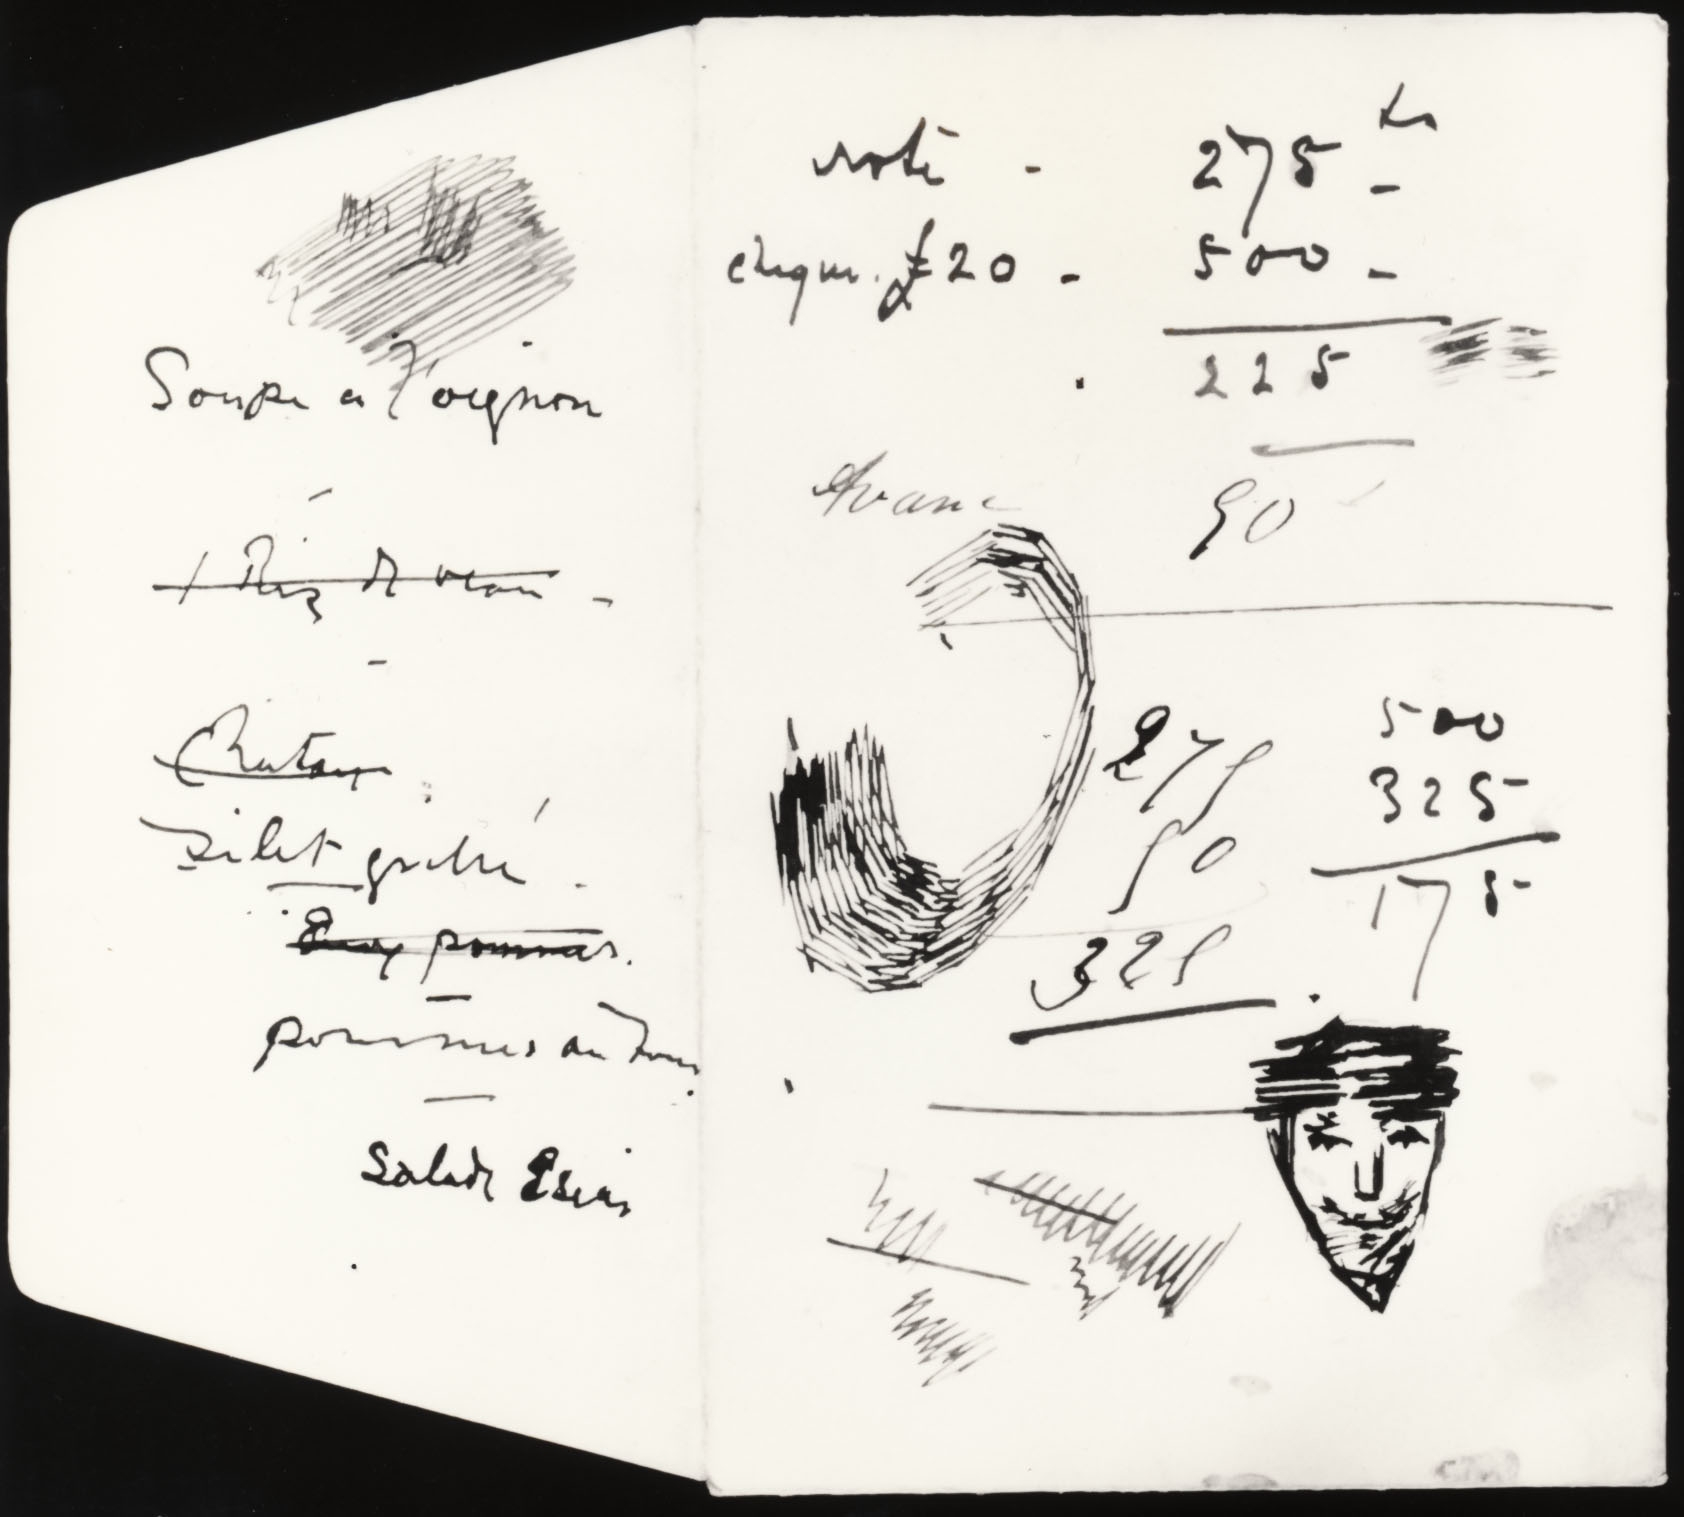 Soupe a l'oignon
+ Riz de veau -
Chateau
Filet grillé.
pommes.
pommes au four
Salade
note - 275 -
cheque. £20 - 500 -
225
Avance 50
275
50
325
500
325
175